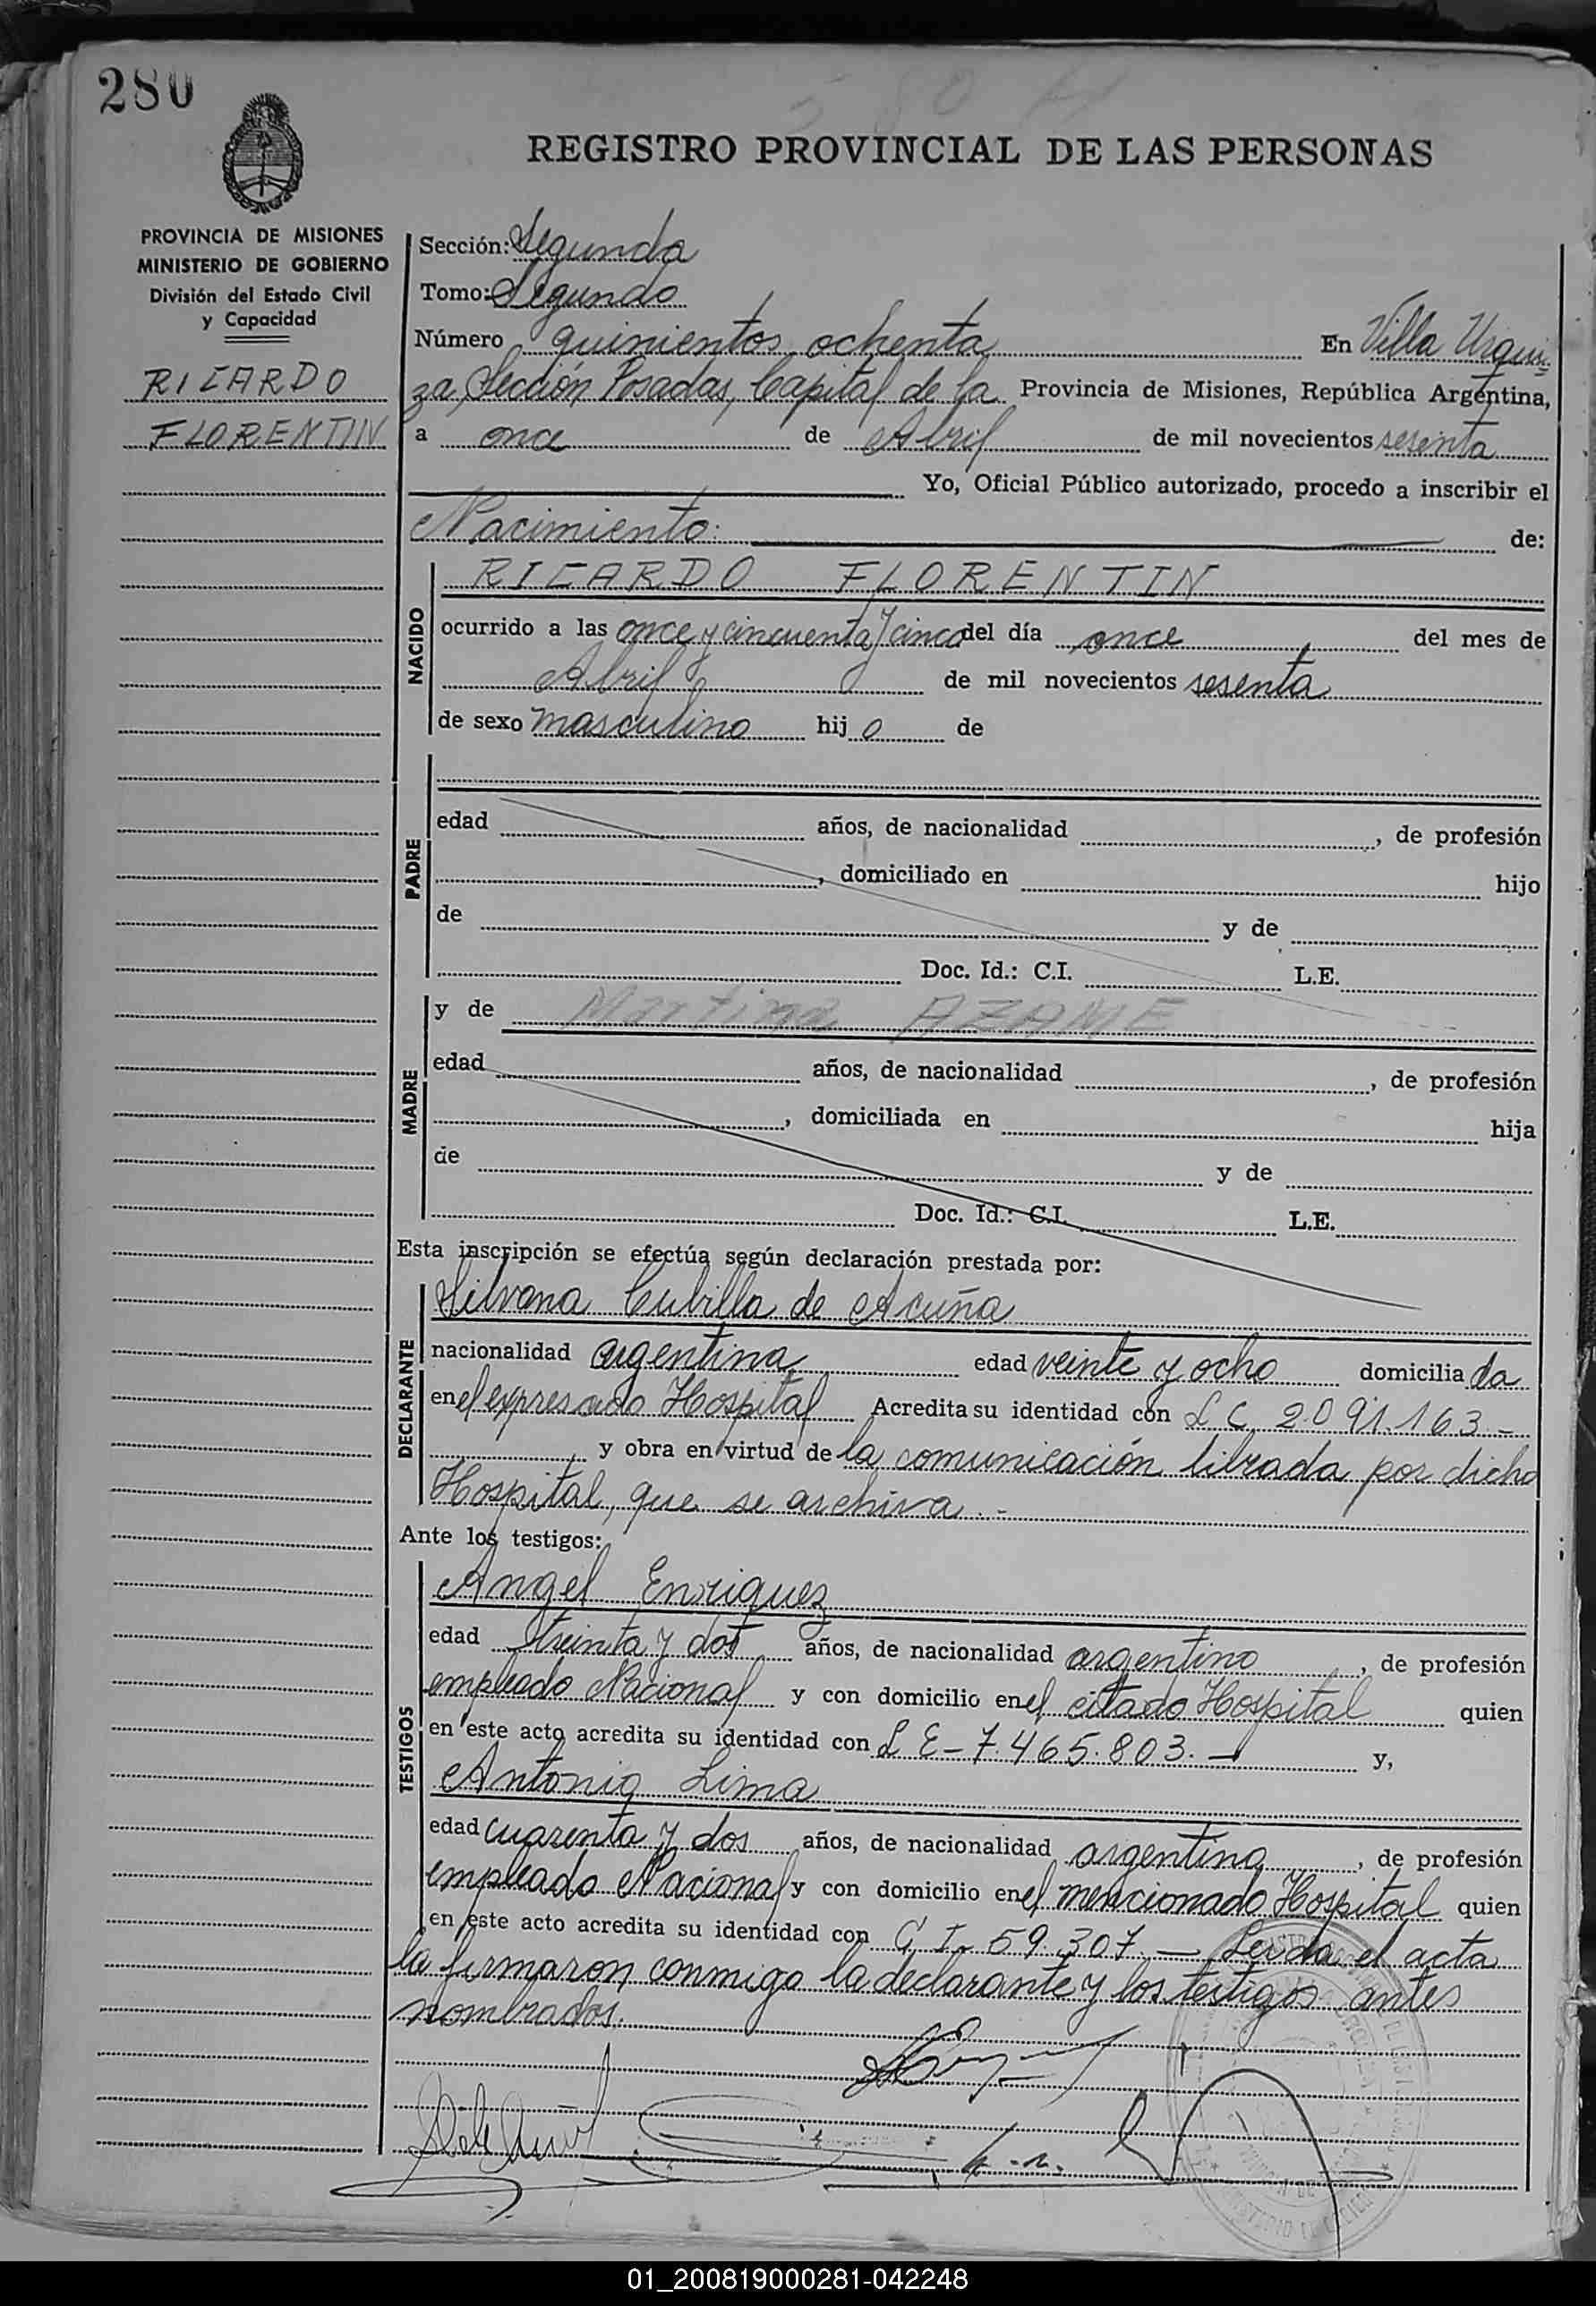 280
REGISTRO PROVINCIAL DE LAS PERSONAS
PROVINCIA DE MISIONES
MINISTERIO DE GOBIERNO
División del Estado Civil
y Capacidad
RICARDO
FLORENTIN
Sección: Segunda
Tomo: Segundo
Número quinientos ochenta En Villa Urqui
za, Sección Posadas, Capital de la Provincia de Misiones, República Argentina,
a once de Abril de mil novecientos sesenta
Yo, Oficial Público autorizado, procedo a inscribir el
Nacimiento: de:
NACIDO
RICARDO FLORENTIN
ocurrido a las once y cincuenta y cinco del día once del mes de
Abril de mil novecientos sesenta
de sexo masculino hijo de
PADRE
edad años, de nacionalidad , de profesión
, domiciliado en hijo
de y de
Doc. Id.: C.I. L.E.
MADRE
y de Martina AZAME
edad años, de nacionalidad , de profesión
, domiciliada en hija
de y de
Doc. Id.: C.I. L.E.
Esta inscripción se efectúa según declaración prestada por:
DECLARANTE
Silvana Cubilla de Acuña
nacionalidad argentina edad veinte y ocho domiciliada
en el expresado Hospital Acredita su identidad con L C 2.091.163.-
y obra en virtud de la comunicación librada por dicho
Hospital, que se archiva.-
Ante los testigos:
TESTIGOS
Angel Enriquez
edad treinta y dos años, de nacionalidad argentino, de profesión
empleado Nacional y con domicilio en el citado Hospital quien
en este acto acredita su identidad con L E - 7.465.803.- y,
Antonio Lima
edad cuarenta y dos años, de nacionalidad argentino, de profesión
empleado Nacional y con domicilio en el mencionado Hospital quien
en este acto acredita su identidad con C I - 59.307.- Leida el acta
la firmaron conmigo la declarante y los testigos antes
nombrados.
01_200819000281-042248